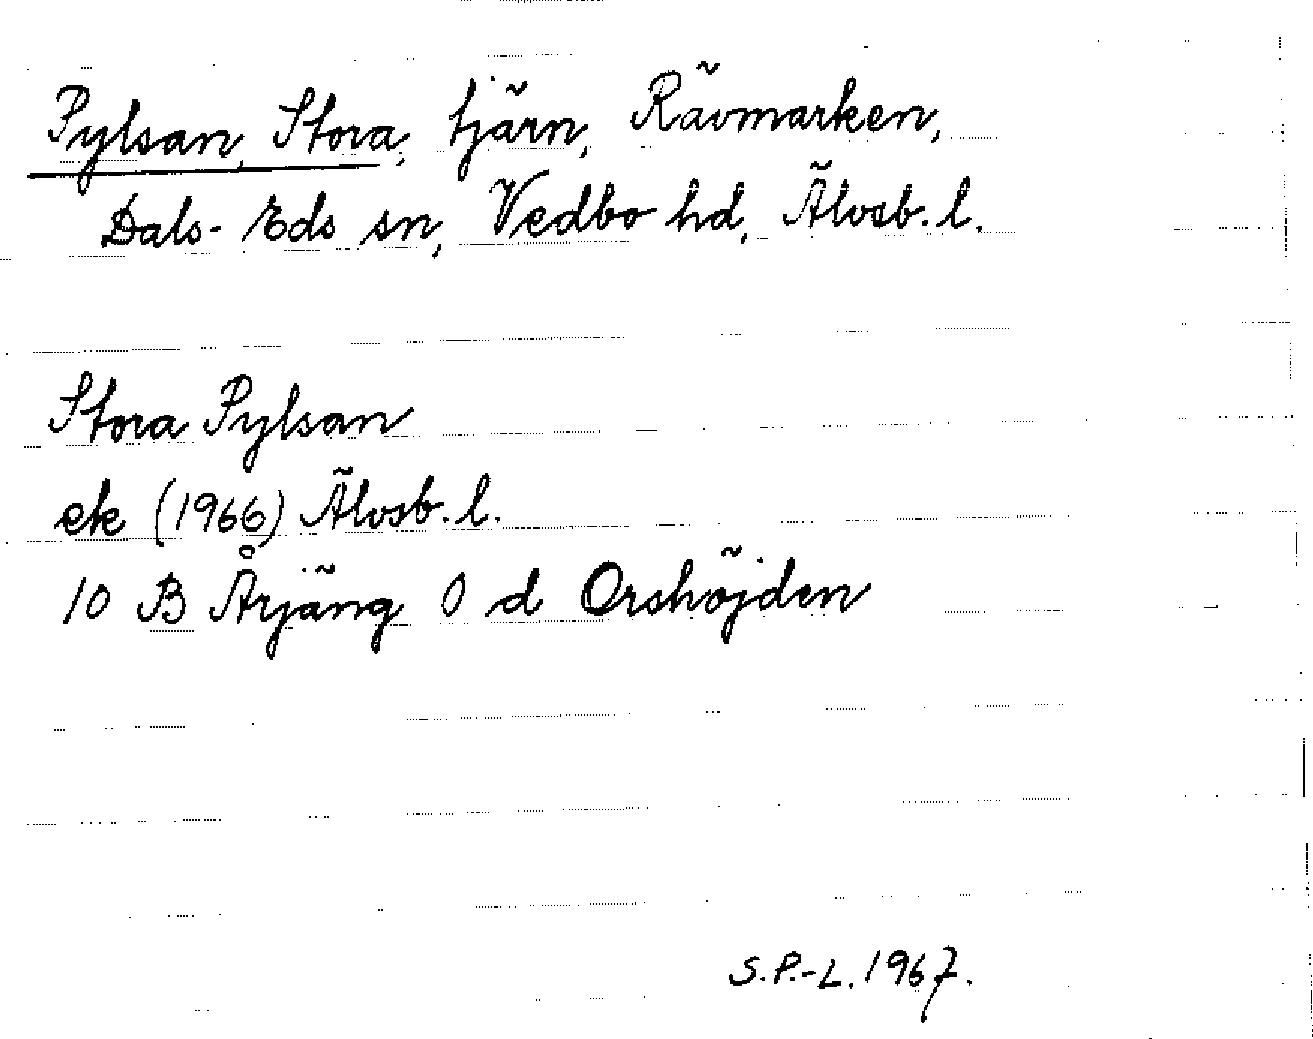 Pylsan, Stora, tjärn, Rävmarken,
Dals-Eds sn, Vedbo hd, Älvsb. l.
Stora Pylsan
ek (1966) Älvsb. l.
10 B Årjäng 0 d Orshöjden
S.P.-L. 1967.